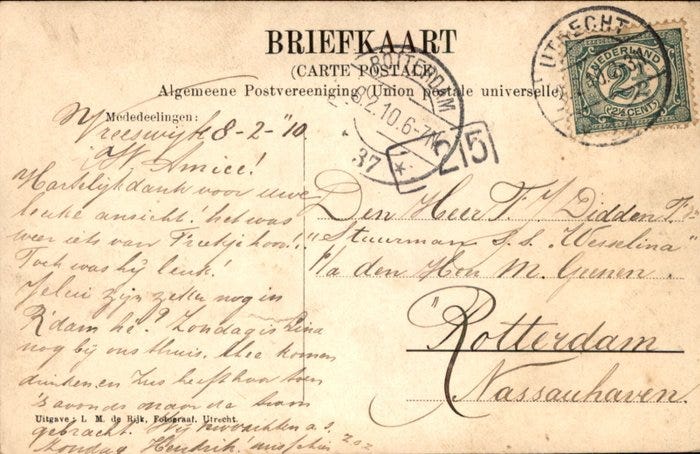 BRIEFKAART
(CARTE POSTALE)
Algemeene Postvereeniging (Union postale universelle)
Mededeelingen:
UTRECHT
NEDERLAND
2½
(2½ CENT)
ROTTERDAM
8 2.10.6-7N
37 *
215
Vreeswijk 8-2-"10.
W Amice!
Hartelijk dank voor uwe
leuke ansicht! het was
weer iets van Freetje hoor!
Toch was hij leuk!
Jelui zijn zeker nog in
R'dam hè? Zondag is Lina
nog bij ons thuis thee komen
drinken en Zus heeft haar toen
's avonds naar de tram
gebracht. Wij verwachten a.s.
Zondag Hendrik misschien
Den Heer F. J. Didden
Stuurman S.S. "Wesselina"
p/a den Heer M.
"Rotterdam
Nassauhaven.
Uitgave: L. M. de Rijk, Fotograaf, Utrecht.